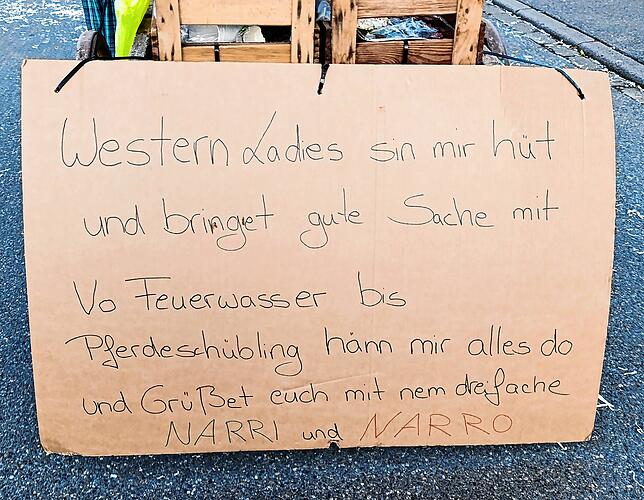 Western Ladies sin mir hüt
und bringet gute Sache mit
Vo Feuerwasser bis
Pferdeschübling hänn mir alles do
und Grüßet euch mit nem dreifache
NARRI und NARRO